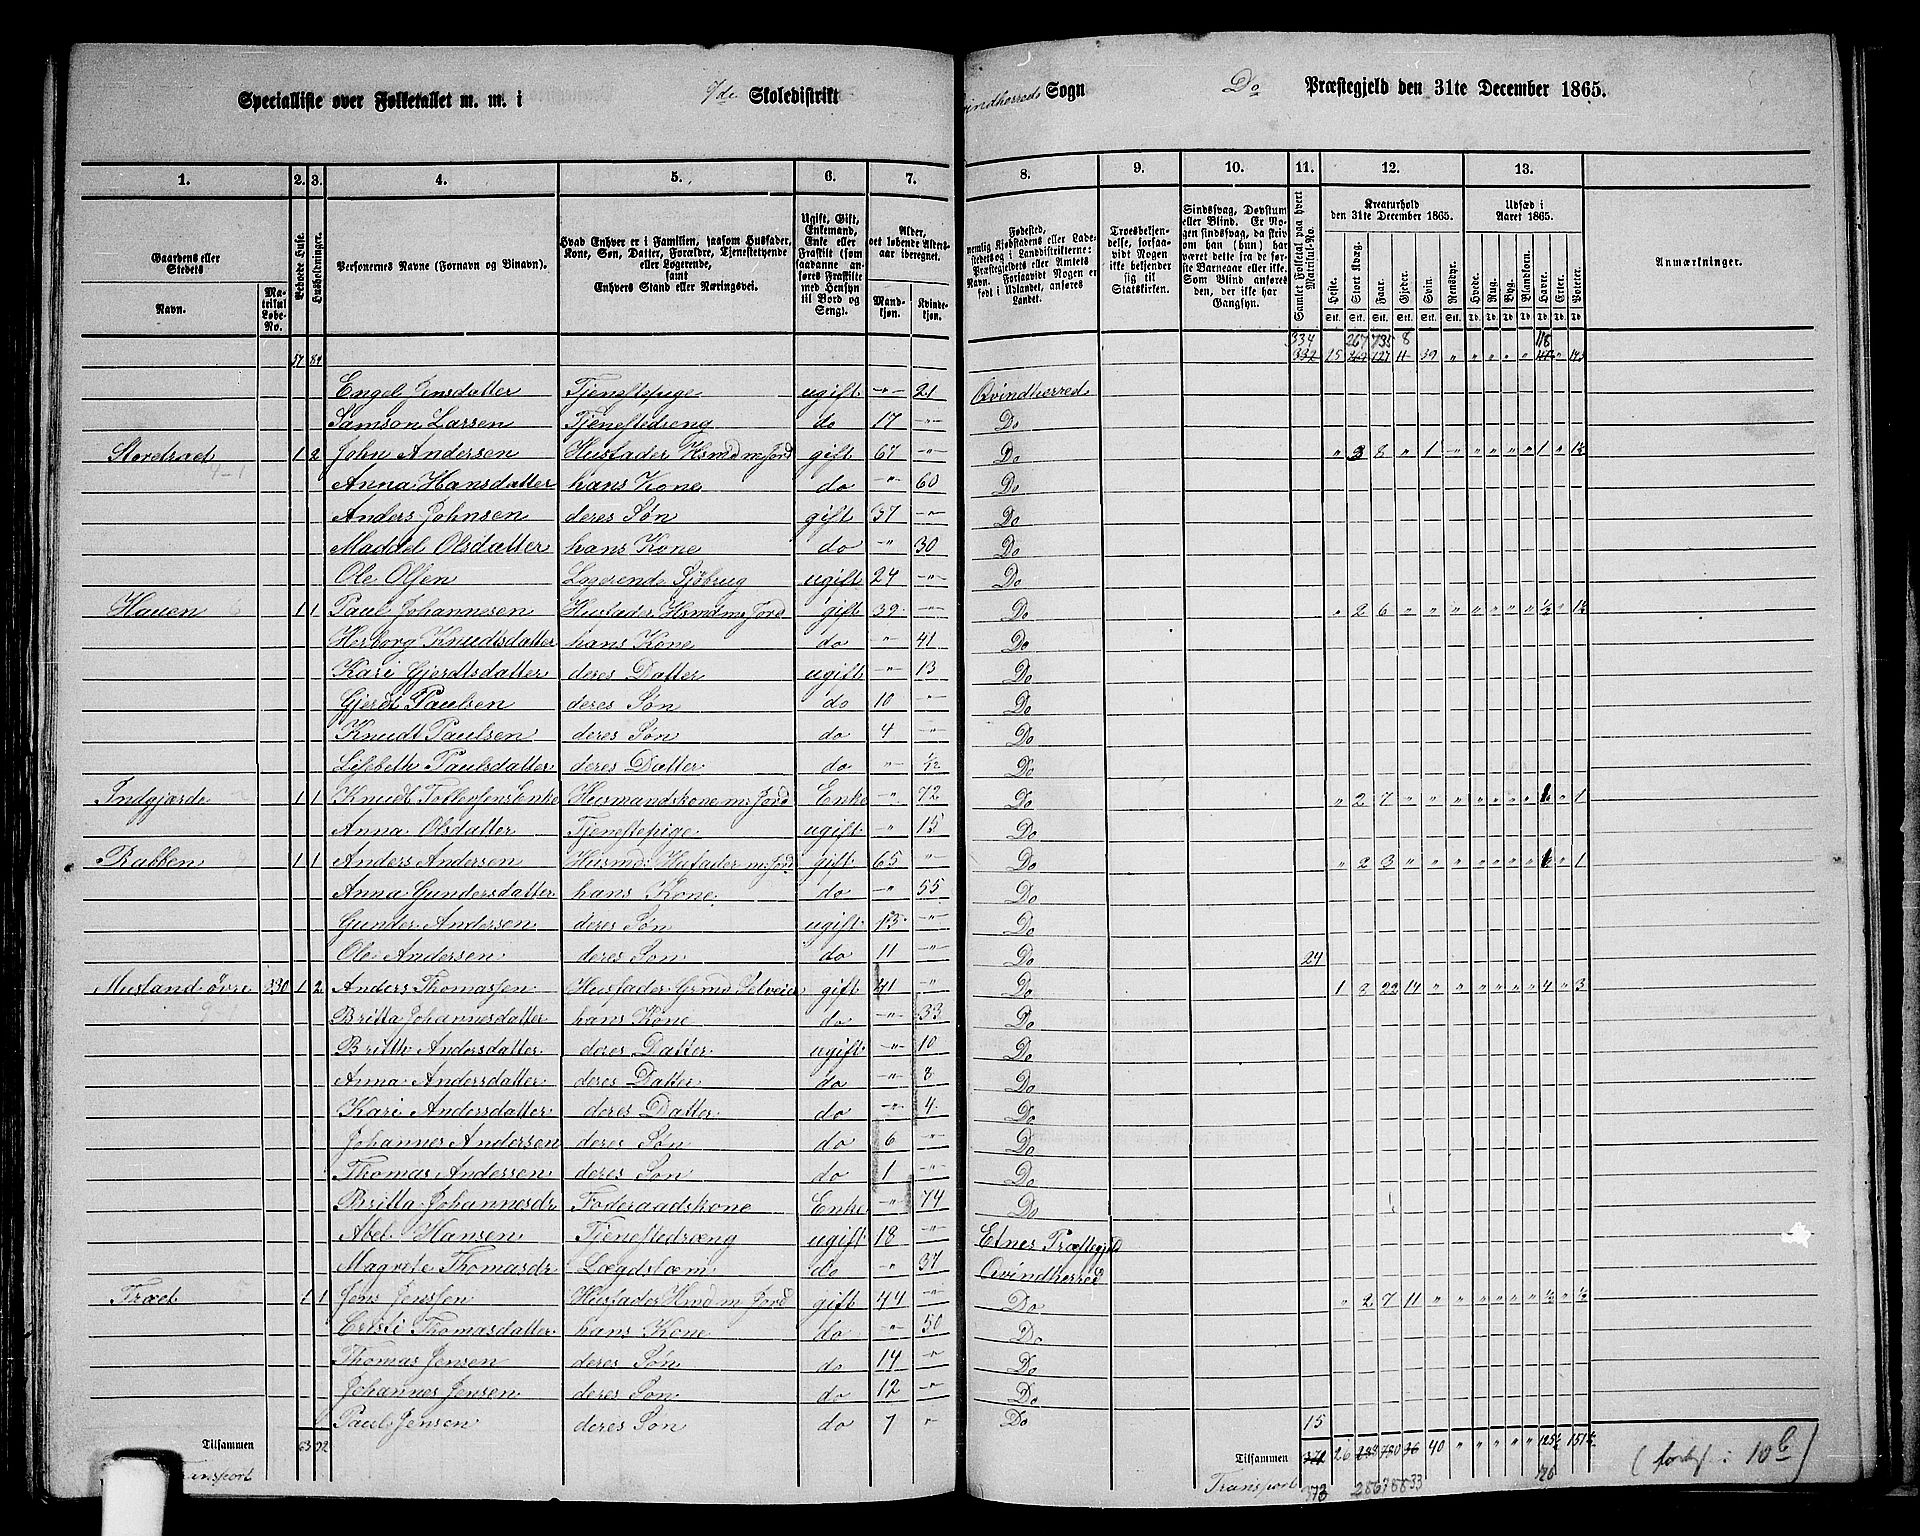 Specialliste over Folketallet m. m. i 7de Skoledistrikt Qvindherreds Sogn Do Præstegjeld den 31te December 1865.
1. 2. 3. 4. 5. 6. 7. 8. 9. 10. 11. 12. 13.
Gaardens eller Stedets
Navn.
Matrikul Løbe-No.
Beboede Huse.
Husholdninger.
Personernes Navne (Fornavn og Binavn).
Hvad Enhver er i Familien, saasom Husfader, Kone, Søn, Datter, Forældre, Tjenestetyende eller Logerende, samt Enhvers Stand eller Næringsvei.
Ugift, Gift, Enkemand, Enke eller Fraskilt (som saadanne anføres Fraskilte med Hensyn til Bord og Seng).
Alder, det løbende Aldersaar iberegnet.
Mandkjøn. Kvindekjøn.
Fødested,
Troesbekjendelse, forsaavidt Nogen ikke bekjender sig til Statskirken.
Sindssvag, Døvstum eller Blind. Er Nogen sindssvag, da skriv om han (hun) har været det fra de første Barneaar eller ikke. Som Blind anføres den, der ikke har Gangsyn.
Samlet Folketal paa hvert Matrikul-No.
Kreaturhold den 31te December 1865.
Heste. Stort Kvæg. Faar. Gjeder. Svin. Rensdyr.
Udsæd i Aaret 1865.
Hvede. Rug. Byg. Blandkorn. Havre. Erter. Poteter.
Anmærkninger.
334 267 735 8 118
57 84 332 25 39
Engel Jensdatter Tjenestepige ugift " 21 Qvindherred
Samson Larsen Tjenestedreng do 17 " Do
Stordraet 1 2 John Andersen Husfader Hsmd m Jord gift 67 " Do " 3 8 " 1 " " " " " 1 " 1½
4-1
Anna Hansdatter hans Kone do " 60 Do
Anders Johnsen deres Søn gift 37 " Do
Maddel Olsdatter hans Kone do " 30 Do
Ole Olsen Logerende Sjöbrug ugift 24 " Do
Hauen 1 1 Paul Johannesen Husfader Hsmd m Jord gift 39 " Do " 2 6 " " " " " " " ½ " 1½
Herborg Knudtsdatter hans Kone do " 41 Do
Kari Gjordtsdatter deres Datter ugift " 13 Do
Gjerdt Paulsen deres Søn do 10 " Do
Knudt Paulsen deres Søn do 4 " Do
Lisbeth Paulsdatter deres Datter do " 1/12 Do
Indgjærde 1 1 Knudt Tollefsens Enke Husmandskone m Jord Enke " 72 Do " 2 7 " " " " " " " " 1
Anna Olsdatter Tjenestepige ugift " 15 Do
Rabben 1 1 Anders Andersen Husmd Husfader m Jord gift 65 " Do " 2 3 " " " " " " " " 1
Anna Gundersdatter hans Kone do " 55 Do
Gunder Andersen deres Søn ugift 13 " Do
Ole Andersen deres Søn do 11 " Do 24
Musland övre 330 1 2 Anders Thomassen Husfader Grmd Selveier gift 41 " Do 1 8 22 14 " " " " " " 4 " 3
9
Britta Johannesdatter hans Kone do " 33 Do
Brith Andersdatter deres Datter ugift " 10 Do
Anna Andersdatter deres Datter do " 8 Do
Kari Andersdatter deres Datter do " 4 Do
Johannes Andersen deres Søn do 6 " Do
Thomas Andersen deres Søn do 1 " Do
Britta Johannesdr Föderaadskone Enke " 74 Do
Abel Hansen Tjenestedræng ugift 18 " Etnes Præstegjeld
Magrete Thomasdr Lægdslæm do " 37 Qvindherred
Træet 1 1 Jens Jenssen Husfader Hmd m Jord gift 44 " Do " 2 7 11 " " " " " " ½ " ½
Cristi Thomasdatter hans Kone do " 50 Do
Thomas Jensen deres Søn do 14 " Do
Johannes Jensen deres Søn do 12 " Do
Paul Jensen deres Søn do 7 " Do 15
Tilsammen 63 92 Tilsammen 26 40 " " " " " 125½ " 151½
Transport Transport 373 286 788 33 126
(fortss: 10b)